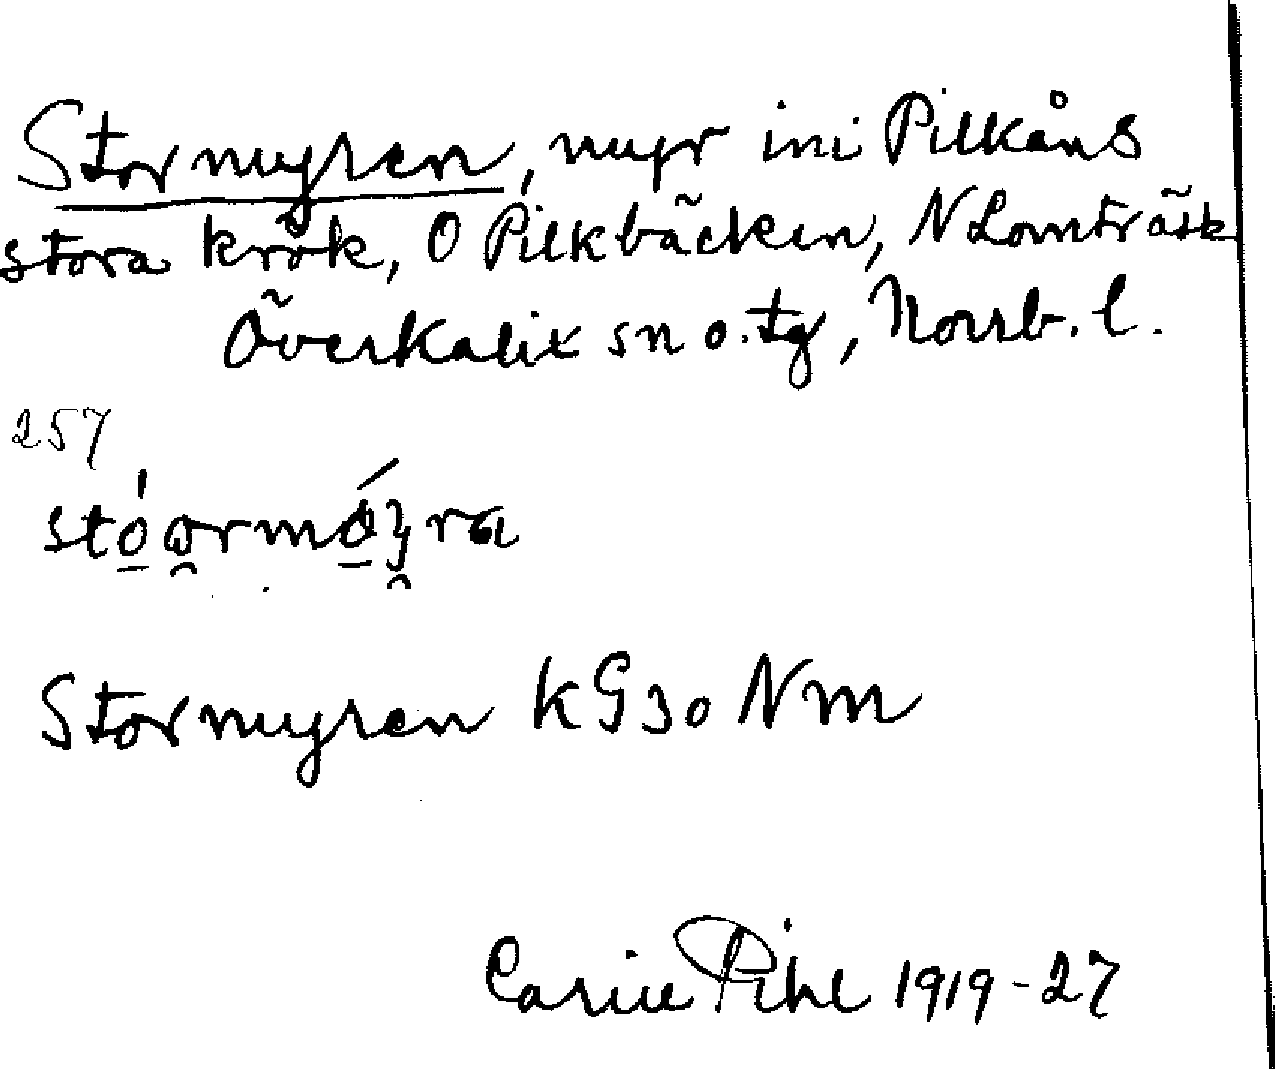 Stormyren, myr ini Pilkåns
stora krök, O Pilkbäcken, N Lomträsk
Överkalix sn o. tg, Norrb. l.
257
stó̠ɷ̯rmó̠y̯ra
Stormyren kG30Nm
Carin Pihl 1919-27